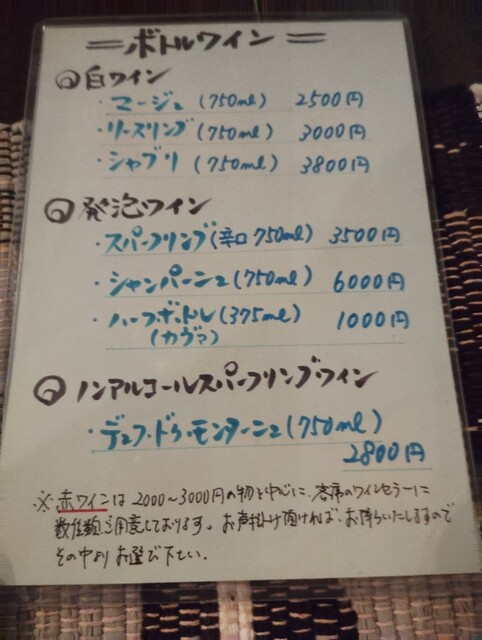 ＝ボトルワイン＝
白ワイン
・マージュ(750ml) 2500円
・リースリング(750ml) 3000円
・シャブリ(750ml) 3800円
発泡ワイン
・スパークリング(辛口 750ml) 3500円
・シャンパーニュ(750ml) 6000円
・ハーフボトル(375ml) 1000円
(カヴァ)
ノンアルコールスパークリングワイン
・デュク・ドゥ・モンターニュ(750ml)
2800円
※赤ワインは2000～3000円の物を中心に、客席のワインセラーに
数種類ご用意しております。お声掛け頂ければ、お持ちいたしますので
その中よりお選び下さい。